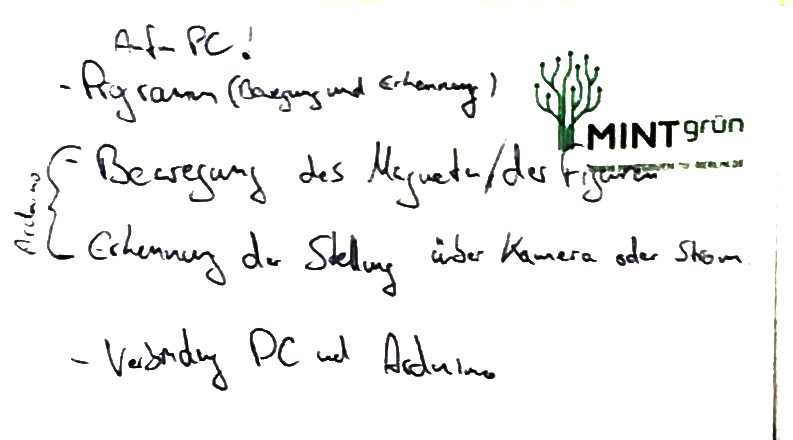 Auf'm PC!
- Programm (Bewegung und Erkennung)
MINTgrün
- Bewegung des Magneten/der Figuren
Arduino
- Erkennung der Stellung über Kamera oder Strom
- Verbindung PC und Arduino